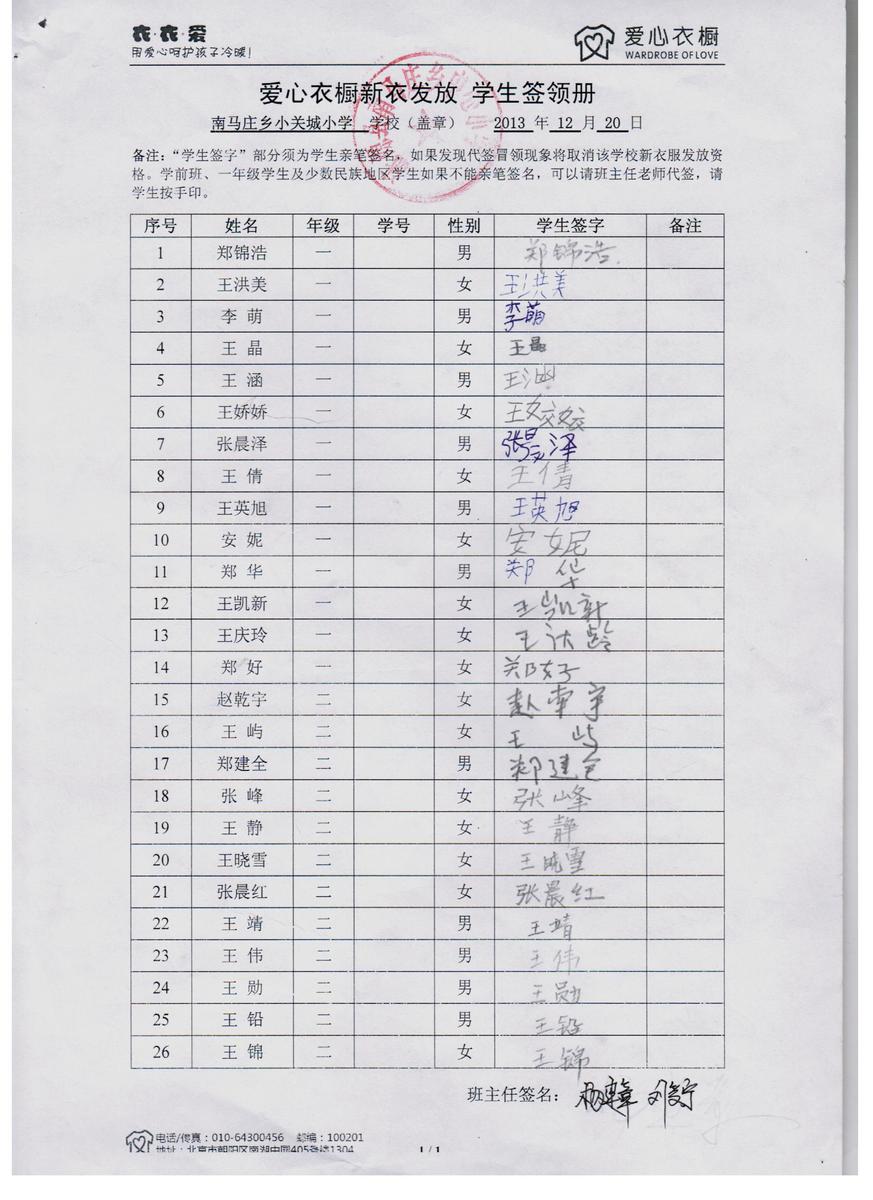 衣·衣·爱
用爱心呵护孩子冷暖!
爱心衣橱
WARDROBE OF LOVE
爱心衣橱新衣发放 学生签领册
南马庄乡小关城小学 学校（盖章） 2013 年 12 月 20 日
备注：“学生签字”部分须为学生亲笔签名，如果发现代签冒领现象将取消该学校新衣服发放资
格。学前班、一年级学生及少数民族地区学生如果不能亲笔签名，可以请班主任老师代签，请
学生按手印。
序号 姓名 年级 学号 性别 学生签字 备注
1 郑锦浩 一 男 郑锦浩
2 王洪美 一 女 王洪美
3 李 萌 一 男 李萌
4 王 晶 一 女 王晶
5 王 涵 一 男 王涵
6 王娇娇 一 女 王姣姣
7 张晨泽 一 男 张晨泽
8 王 倩 一 女 王倩
9 王英旭 一 男 王英旭
10 安 妮 一 女 安妮
11 郑 华 一 男 郑 华
12 王凯新 一 女 王凯新
13 王庆玲 一 女 王 龄
14 郑 好 一 女 郑好
15 赵乾宇 二 女 赵 宇
16 王 屿 二 女 王 屿
17 郑建全 二 男 郑建全
18 张 峰 二 女 张峰
19 王 静 二 女 王 静
20 王晓雪 二 女 王晓雪
21 张晨红 二 女 张晨红
22 王 靖 二 男 王靖
23 王 伟 二 男 王伟
24 王 勋 二 男 王勋
25 王 铅 二 男 王铅
26 王 锦 二 女 王锦
班主任签名：
电话/传真：010-64300456 邮编：100201
地址：北京市朝阳区南湖中园405号楼1304
1 / 1